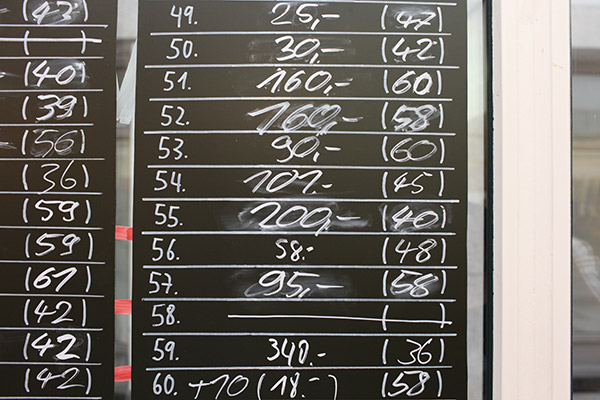 (43)
49. 25,- (47)
( )
50. 30,- (42)
(40)
51. 160,- (60)
(39)
52. 160,- (58)
(56)
53. 90,- (60)
(36)
54. 101.- (45)
(59)
55. 200,- (40)
(59)
56. 58.- (48)
(61)
57. 95,- (58)
(42)
58. ( )
(42)
59. 340.- (36)
(42)
60. +10 (18.-) (58)